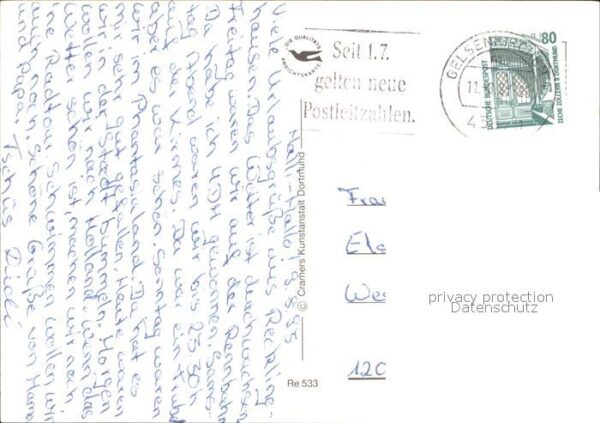 Halli-Hallo! 9.8.93
Viele Urlaubsgrüße aus Reckling-
hausen. Das Wetter ist durchwachsen.
Freitag waren wir auf der Rennbahn.
Da habe ich 4DM gewonnen. Sams-
tag Abend waren wir bis 23.30h
auf der Kirmes. Da war ein Trubel
aber es war schön. Sonntag waren
wir im Phantasialand. Da hat es
mir sehr gut gefallen. Heute waren
wir in der Stadt bummeln. Morgen
wollen wir nach Holland. Wenn das
Wetter schön ist, machen wir noch
ne Radtour. Schwimmen wollen wir
auch noch. Schöne Grüße von Mama
und Papa. Tschüs
© Cramers Kunstanstalt Dortmund
Re 533
DIE QUALITÄTS
ANSICHTSKARTE
Seit 1.7.
gelten neue
Postleitzahlen.
GELSENKIRCHEN
11.
4
80
DEUTSCHE BUNDESPOST
ZECHE ZOLLERN II DORTMUND
Frau
Ele
We
120
privacy protection
Datenschutz